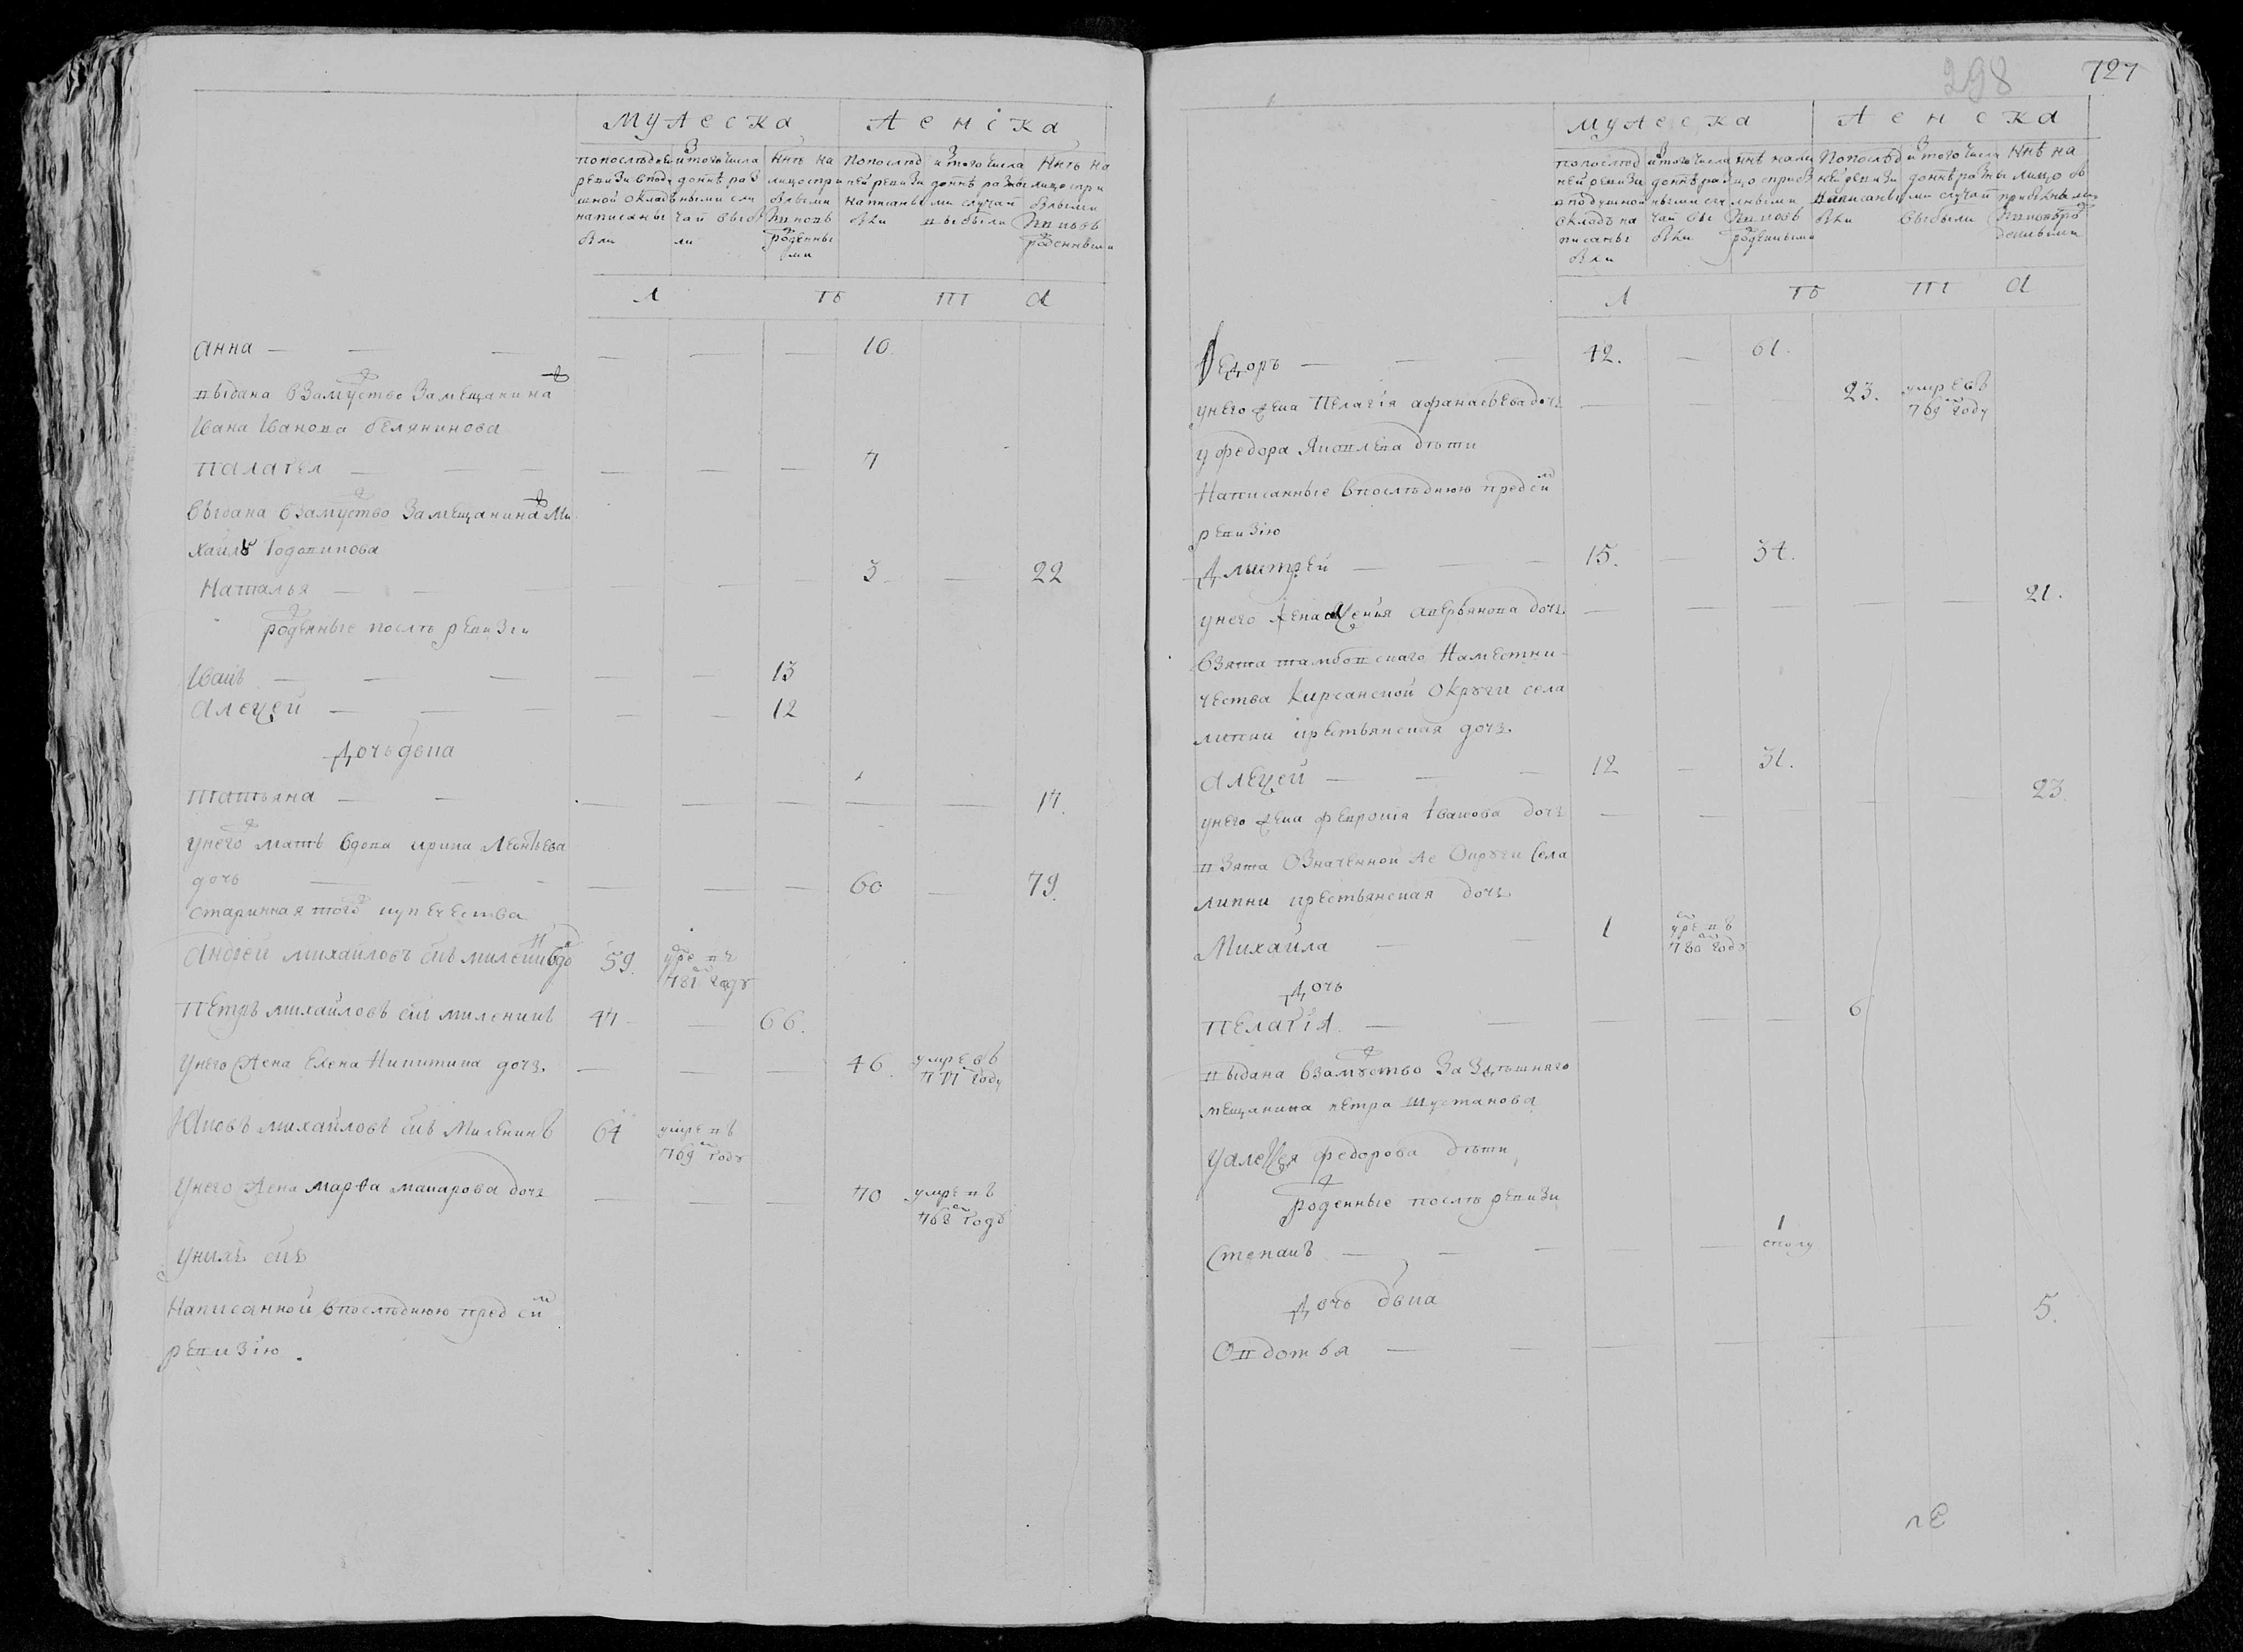 мужеска женска
попоследней ревизи вподушной окладъ написаны были
изтого числа донне разными случаи выбыли
ныне на лицо сприбылыми и вновь рожденными
попоследней ревизи написаны были
изтого числа донне разными случаи выбыли
Ныне на лицо сприбылыми и вновь рожденными
лѣта
анна — — — — — — 10.
выдана взамужство замещанина
Ивана Иванова белянинова
палагея — — — — — — 7
выдана взамужство замещанина Ми
хайлу
Наталья — — — — 3 — 22
рожденные послѣ ревизи
Иванъ — — — — — 13
алеѯей — — — — — 12
Дочь девка
татьяна — — — — — — — 17.
унего мать вдова ирина Леонтьева
дочь — — — — — — 60 — 79.
старинная того купечества
андрей михайловъ снъ миленинъ 59. умре въ
781 году
петръ михайловъ снъ миленинъ 47 — 66.
унего жена Елена Никитина дочь. — — — 46. умре въ
771 году
Яковъ михайловъ снъ Миленинъ 64 умре въ
769 году
унего жена марѳа макарова дочь — — — 70 умре въ
768 году
унихъ снъ
Написанной впоследнюю пред сей
ревизію.
298 727
мужеска женска
попослед
ней ревизи
вподушной
окладъ на
писаны
были
изтого числа
донне раз
ными слу
чаи вы
были
нне нали
цо сприбы
лыми
и вновь
рожденными
Попослед
ней ревизи
написаны
были
изтого числа
донне разны
ми случаи
выбыли
Нне на
лицо съ
прибылыми
и вновь рож
денными
лѣта
Ѳедоръ — — — 42. — 61.
унего жена Пелагія афанасьева дочь — — — 23. умре въ
769 году
у федора Яковлева дѣти
Написанные впоследнюю пред сей
ревизію
Дмитрей — — — 15. — 34.
унего жена аверьянова дочь. — — — — — 21.
взята тамбовскаго Наместни
чества кирсанской округи села
липки крестьянская дочь.
алеѯей — — — 12 — 31.
унего жена феврония Иванова дочь — — — — — 23
взята Означенной же Округи Села
липки крестьянская дочь
Михайла — — 1 умре въ
780 году
Дочь
пелагія — — — — — 6
выдана взамужство За Здешняго
мещанина петра шустанова
у алеѯея федорова дѣти
рожденные послѣ ревизи
Степанъ — — — — — 1
сполу
Дочь девка
Овдотья — — — — — — 5.